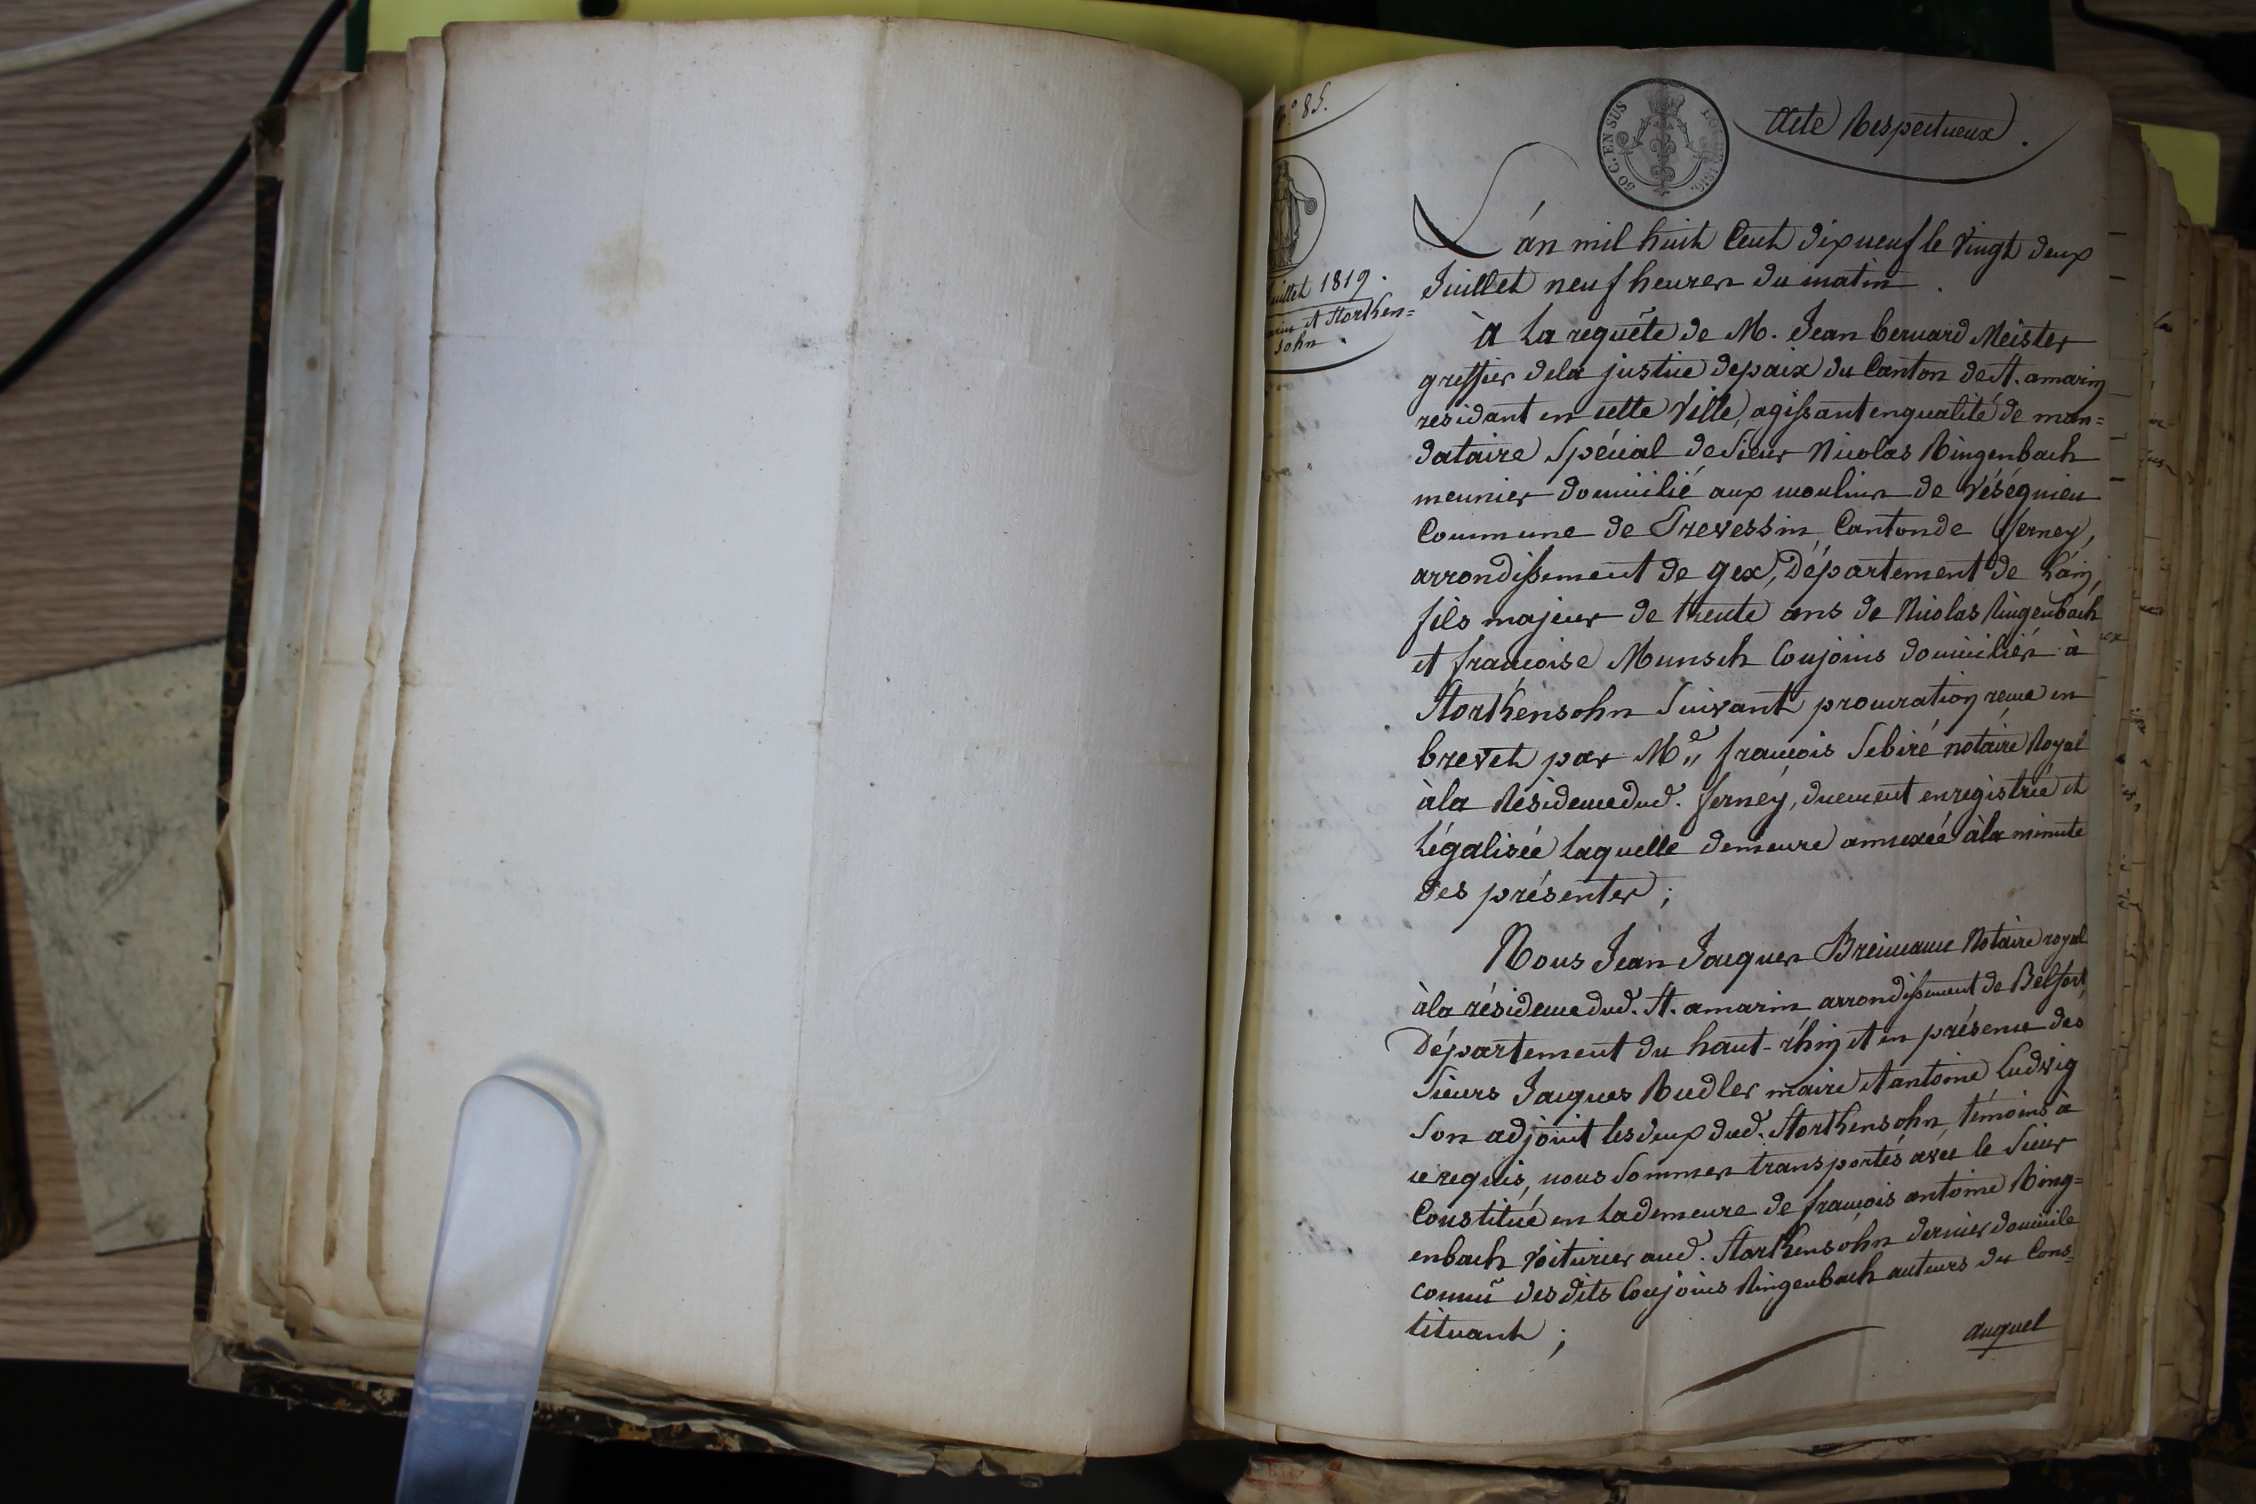 N.° 85.
Acte Respectueux.
50 C. EN SUS
1816.
juillet 1819.
amarin et Storken=
sohn.
L'án mil huit Cent dix neuf le Vingt deux
Juillet neuf heures du matin.
à La requête de M. Jean bernard Meister
greffier dela justice depaix du Canton de St. amarin
residant en cette Ville, agissant enqualité de man=
dataire Spécial de Sieur Nicolas Ringenbach
meunier domicilié aux moulins de Véségnieu
Commune de Prevessin Canton de ferney,
arrondissement de gex, Département de L'ain,
fils majeur de trente ans de Nicolas Ringenbach
et françoise Munsch Conjoins domiciliés à
Storkensohn Suivant procuration recue en
brevet par Me. françois Sebiré notaire Royal
àla Résidence dud. ferney, duement enregistrée et
Légalisée Laquelle demeure annexée àla minute
des présentes;
Nous Jean Jacques Notaire royal
àla résidence dud. St. amarin arrondissement de Belfort,
Département du haut-rhin et en présence des
Sieurs Jacques Rudler maire et antoine Ludwig
Son adjoint les deux dud. Storkensohn, témoins à
ce requis, nous Sommes transportés avec le Sieur
Constitué en Lademeure de françois antoine Ring=
enbach Voiturier aud. Storkensohn dernier domicile
connu desdits Conjoins Ringenbach auteurs du Cons=
tituant;
auquel